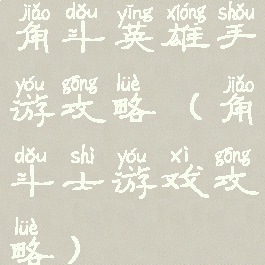 jiǎo dǒu yīng xióng shǒu
角斗英雄手
yóu gōng lüè jiǎo
游攻略（角
dǒu shì yóu xì gōng
斗士游戏攻
lüè
略）